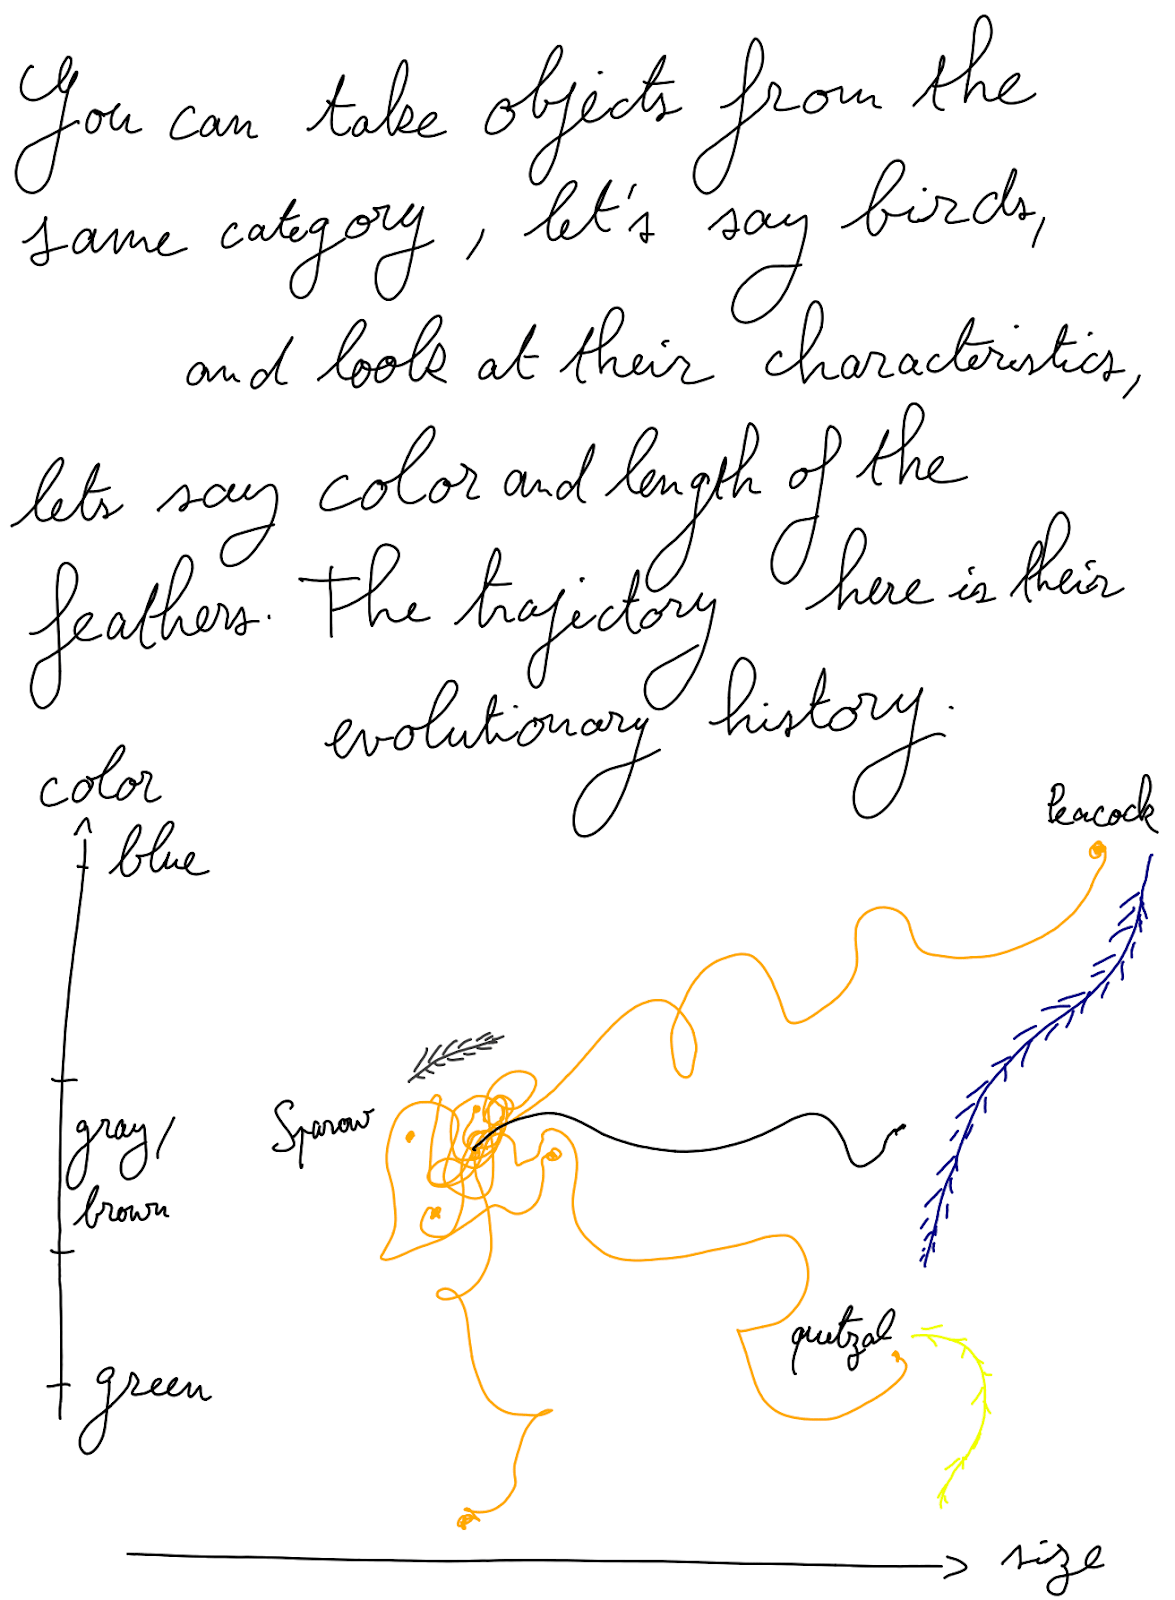 You can take objects from the
same category, let's say birds,
and look at their characteristics,
lets say color and length of the
feathers. The trajectory here is their
evolutionary history.
color
blue
Peacock
Sparow
gray/
brown
quetzal
green
size